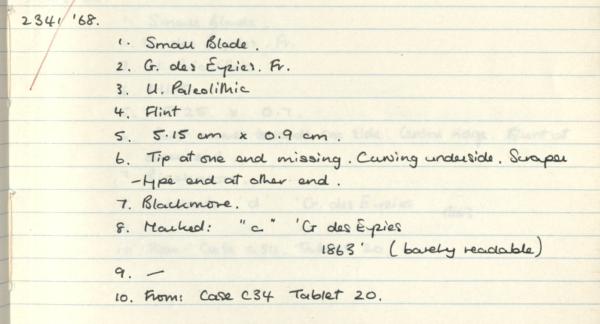 234/ '68.
1. Small Blade.
2. G. des Eyzies. Fr.
3. U. Paleolithic
4. Flint
5. 5.15 cm x 0.9 cm.
6. Tip at one end missing. Curving underside. Scraper
-type end at other end.
7. Blackmore.
8. Marked: "a" 'G des Eyzies
1863' (barely readable)
9. —
10. From: Case C34 Tablet 20.